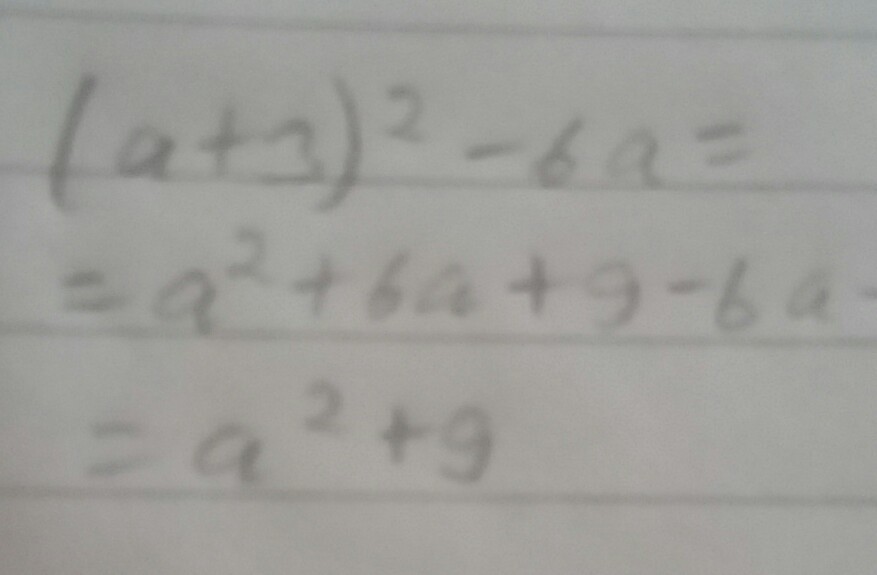 (a+3)² - 6a =
= a² + 6a + 9 - 6a -
= a² + 9